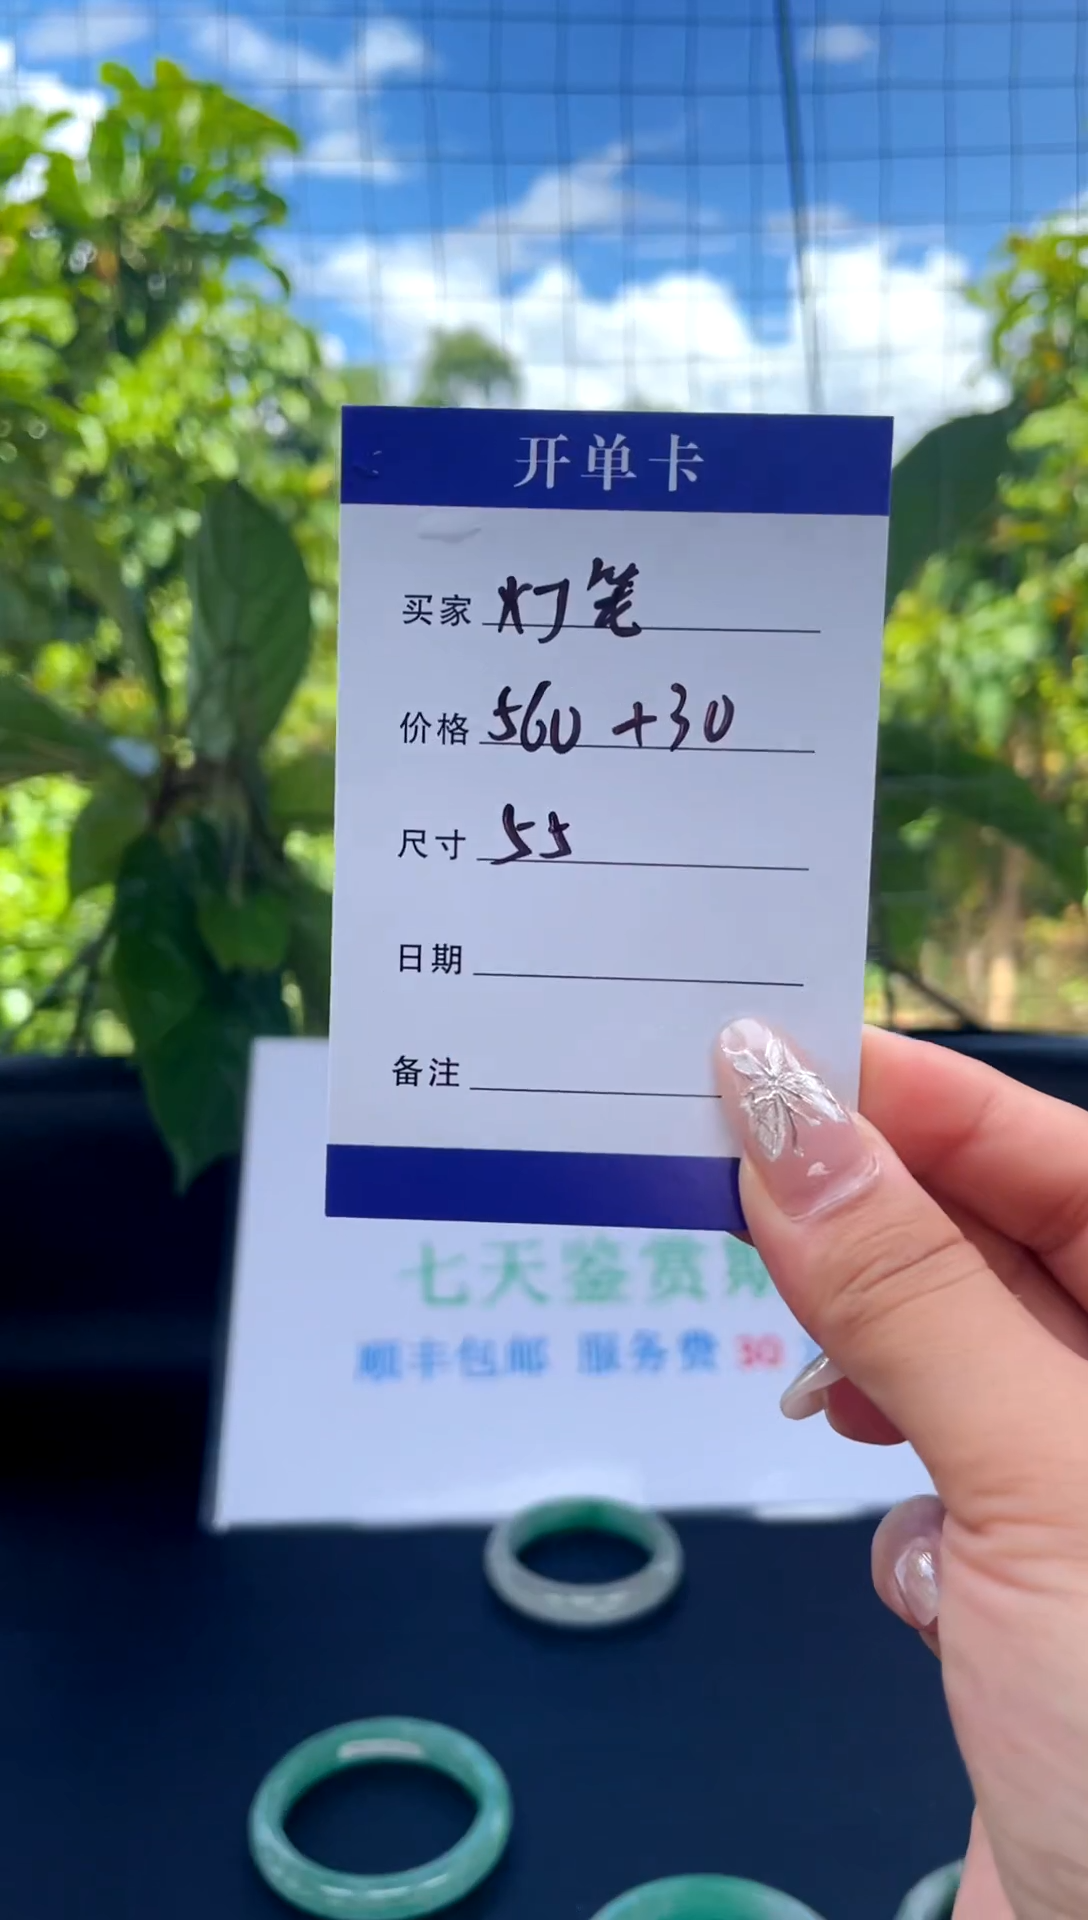 开单卡
买家 灯笔
价格 560 +30
尺寸 55
日期
备注
七天鉴赏期
顺丰包邮 服务费 30